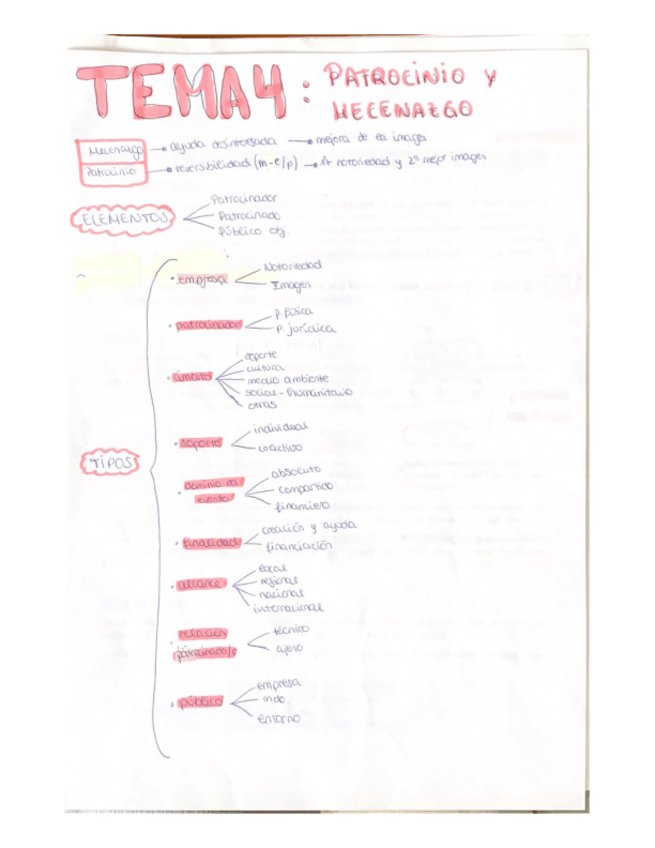 TEMA 4: PATROCINIO Y
MECENAZGO
Mecenazgo → ayuda desinteresada → mejora de la imagen
Patrocinio → reversibilidad (m-e/p) → ↑ notoriedad y 2º mejor imagen
ELEMENTOS
Patrocinador
Patrocinado
Público obj
TIPOS
· empresa
Notoriedad
Imagen
· patrocinador
P. física
P. jurídica
· ámbito
deporte
cultura
medio ambiente
social-humanitario
otras
· soporte
individual
colectivo
· dominio del
evento
absoluto
compartido
financiero
· finalidad
creación y ayuda
financiación
· alcance
local
regional
nacional
internacional
· relación
patrocinado/r
técnico
ajeno
· público
empresa
mdo
entorno